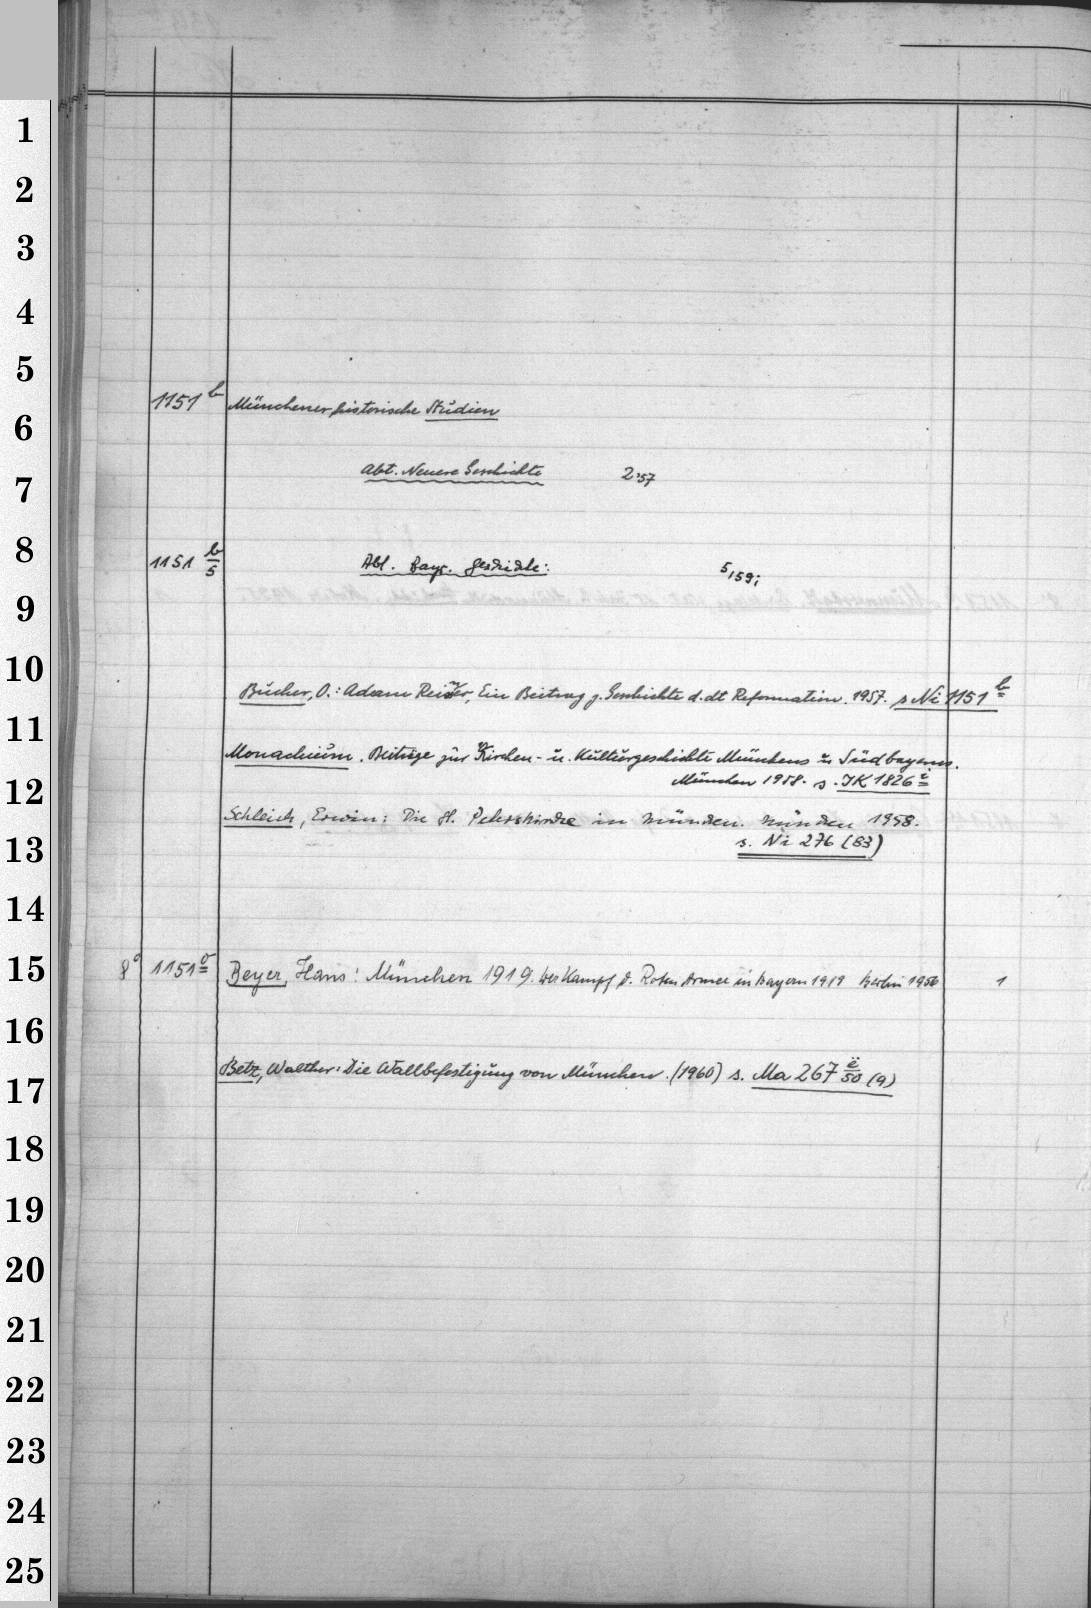 1
2
3
4
5
6
7
8
9
10
11
12
13
14
15
16
17
18
19
20
21
22
23
24
25
1151 b Münchener historische Studien
Abt. Neuere Geschichte 2,57
1151 b/5 Abt. Bayr. Geschichte: 5,59;
Bücher, O.: Adam Ein Beitrag z. Geschichte d. dt Reformation. 1957. s Ni 1151 b
Monachium. Beiträge zur Kirchen- u. Kulturgeschichte Münchens u Südbayerns.
München 1958. s. JK 1826 i
Schleich, Erwin: Die St. Peterskirche in München. München 1958.
s. Ni 276 (83)
8° 1151 o Beyer, Hans: München 1919. Der Kampf d. Roten Armee in Bayern 1919 Berlin 1956 1
Betz, Walther: Die Wallbefestigung von München. (1960) s. Ma 267 ë/50 (9)